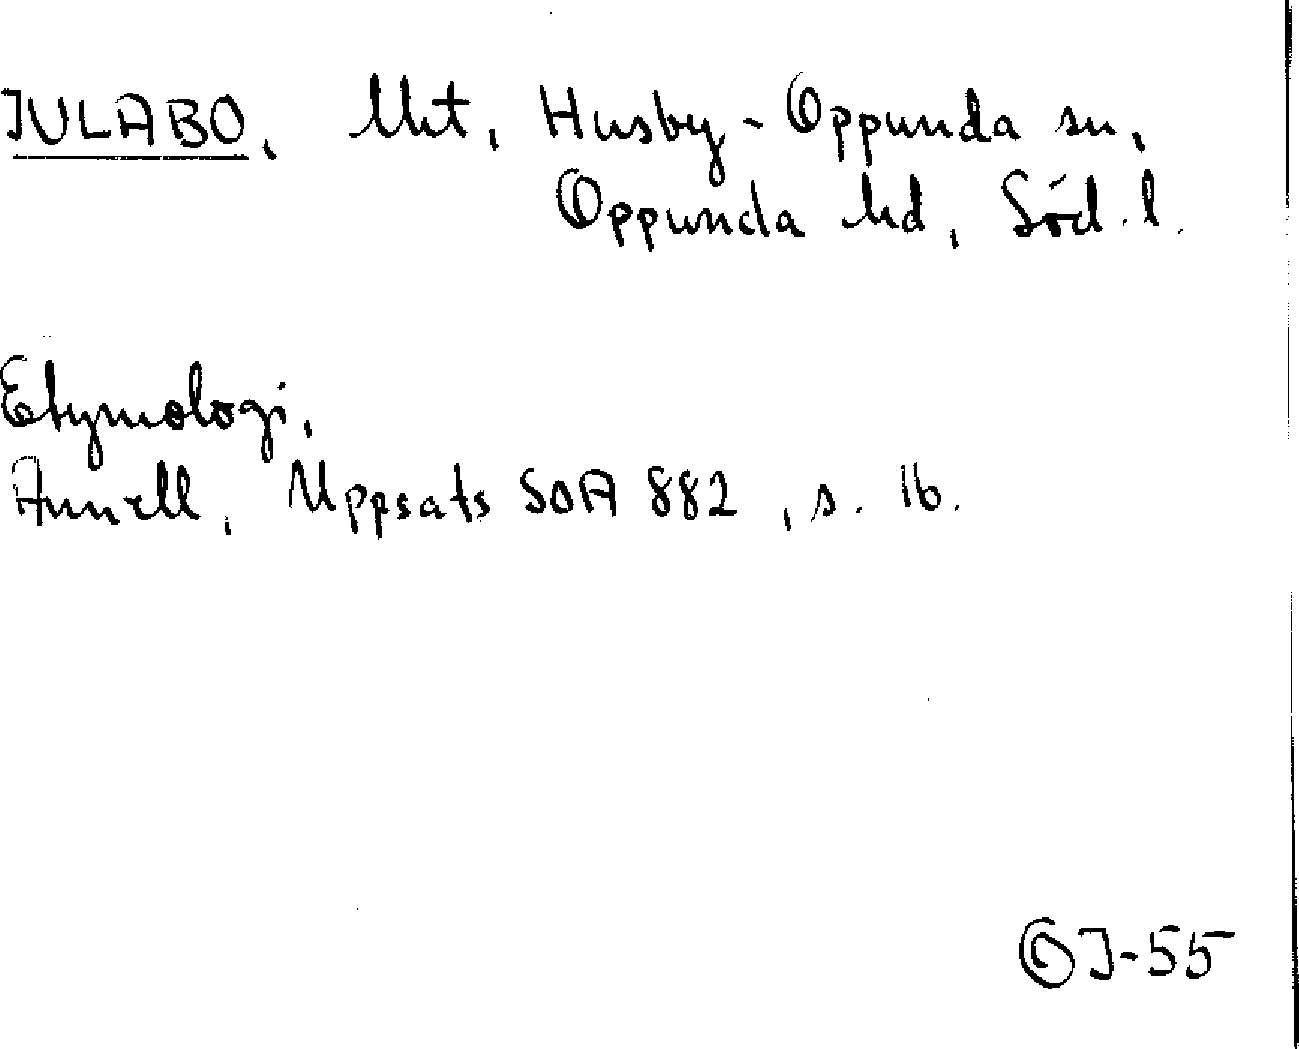 JULABO, Uht, Husby-Oppunda sn,
Oppunda hd, Södl.
Etymologi,
Annell, Uppsats SOA 882, s. 16.
OJ-55